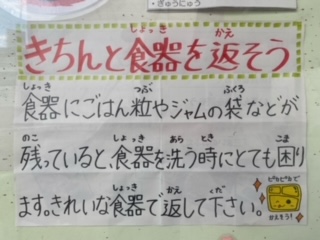 ・ぎゅうにゅう
きちんと食器を返そう
食器にごはん粒やジャムの袋などが
残っていると、食器を洗う時にとても困り
ます。きれいな食器で返して下さい。
ピカピカで
かえそう!